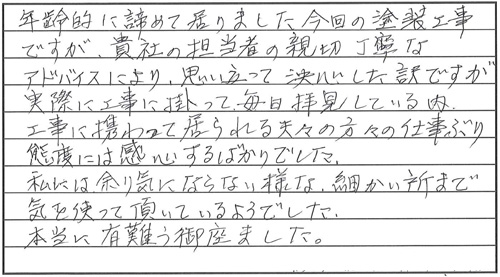 年齢的に諦めて居りました今回の塗装工事
ですが、貴社の担当者の親切丁寧な
アドバイスにより、思い立って決心した訳ですが
実際に工事に掛って、毎日拝見している内、
工事に携わって居られる夫々の方々の仕事ぶり
態度には感心するばかりでした。
私には余り気にならない様な、細かい所まで
気を使って頂いているようでした。
本当に有難う御座ました。